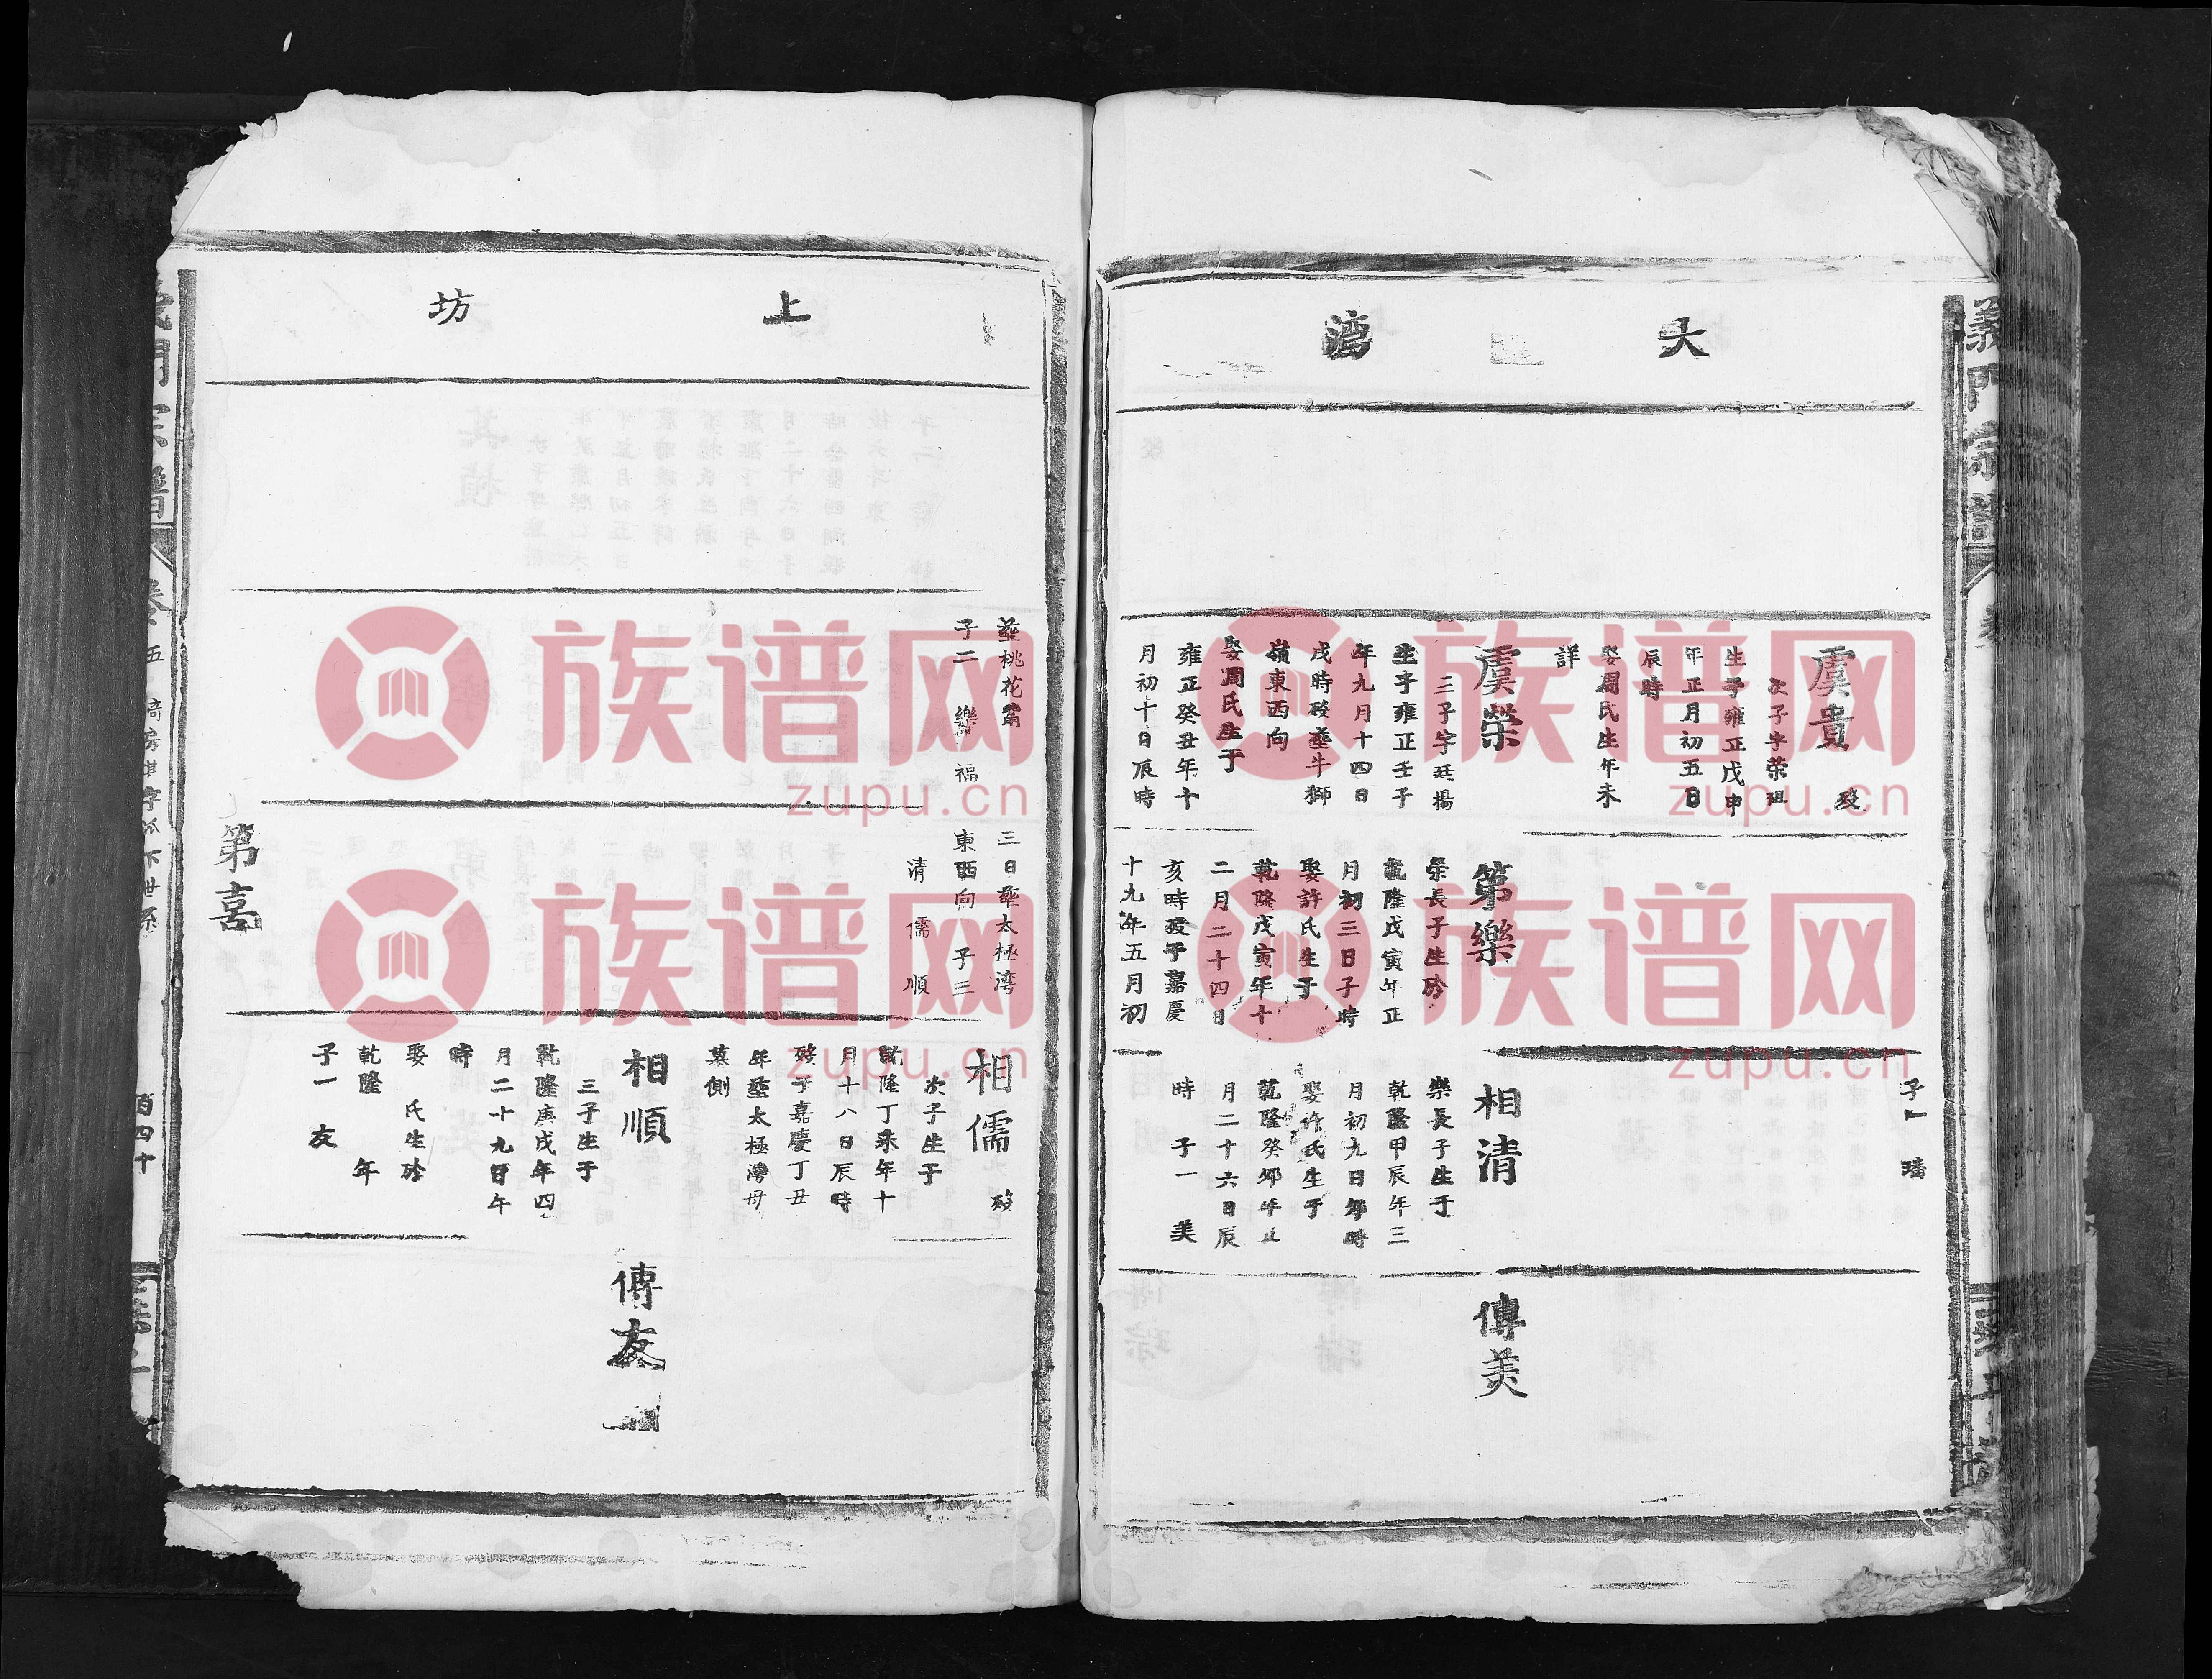 義門宗譜
大
湾
虞貴
歿
次子字荣祖
生于雍正戊申
年正月初五日
辰時
娶周氏生年未
詳
虞榮
三子字廷揚
生于雍正壬子
年九月十四日
戌時歿塟牛獅
嶺東西向
娶周氏生于
雍正癸丑年十
月初十日辰時
第樂
榮長子生於
乾隆戊寅年正
月初三日子時
娶許氏生于
乾隆戊寅年十
二月二十四日
亥時歿于嘉慶
十九年五月初
子一 璠
相清
樂長子生于
乾隆甲辰年三
月初九日卯時
娶许氏生于
乾隆癸卯年正
月二十六日辰
時 子一 美
傳美
上
坊
塟桃花
子二 樂 福
三日塟太極湾
東西向 子三
清 儒 順
第喜
相儒
歿
次子生于
乾隆丁未年十
月十八日辰時
殁于嘉慶丁丑
年塟太極灣母
墓側
相順
三子生于
乾隆庚戌年四
月二十九日午
時
娶 氏生於
乾隆 年
子一 友
傳友
門宗譜
卷五
房其字派下世系
百四十
族谱网
zupu.cn
族谱网
zupu.cn
族谱网
zupu.cn
族谱网
zupu.cn